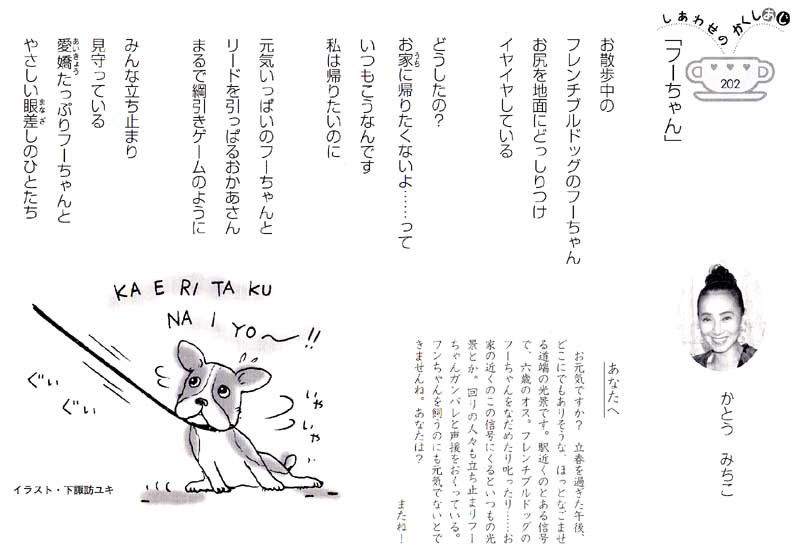 しあわせのかくしあじ
202
「フーちゃん」
かとう みちこ
お散歩中の
フレンチブルドッグのフーちゃん
お尻を地面にどっしりつけ
イヤイヤしている
どうしたの？
お家に帰りたくないよ……って
いつもこうなんです
私は帰りたいのに
元気いっぱいのフーちゃんと
リードを引っぱるおかあさん
まるで綱引きゲームのように
みんな立ち止まり
見守っている
愛嬌たっぷりフーちゃんと
やさしい眼差しのひとたち
あなたへ
お元気ですか？ 立春を過ぎた午後、
どこにでもありそうな、ほっとなごませ
る道端の光景です。駅近くのとある信号
で、六歳のオス。フレンチブルドッグの
フーちゃんをなだめたり叱ったり……お
家の近くのこの信号にくるといつもの光
景とか。回りの人々も立ち止まりフー
ちゃんガンバレと声援をおくっている。
フンちゃんを飼うのにも元気でないとで
きませんね。あなたは？
またね！
KA E RI TA KU
NA I YO〜!!
ぐい
ぐい
いや
いや
イラスト・下諏訪ユキ